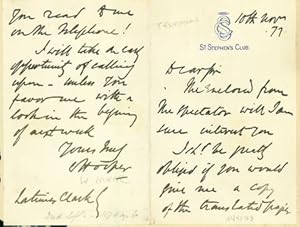 10th Novr
77
ST STEPHEN'S CLUB.
Dear Sir
The Enclosed from
the Spectator will I am
sure interest you
I shd be greatly
obliged if you would
give me a copy
of the translated paper
you read
on the Telephone!
I will take an early
opportunity of calling
upon - unless you
favor me with a
look in the begining
of next week
Yours truly
Hooper
Latimer Clark